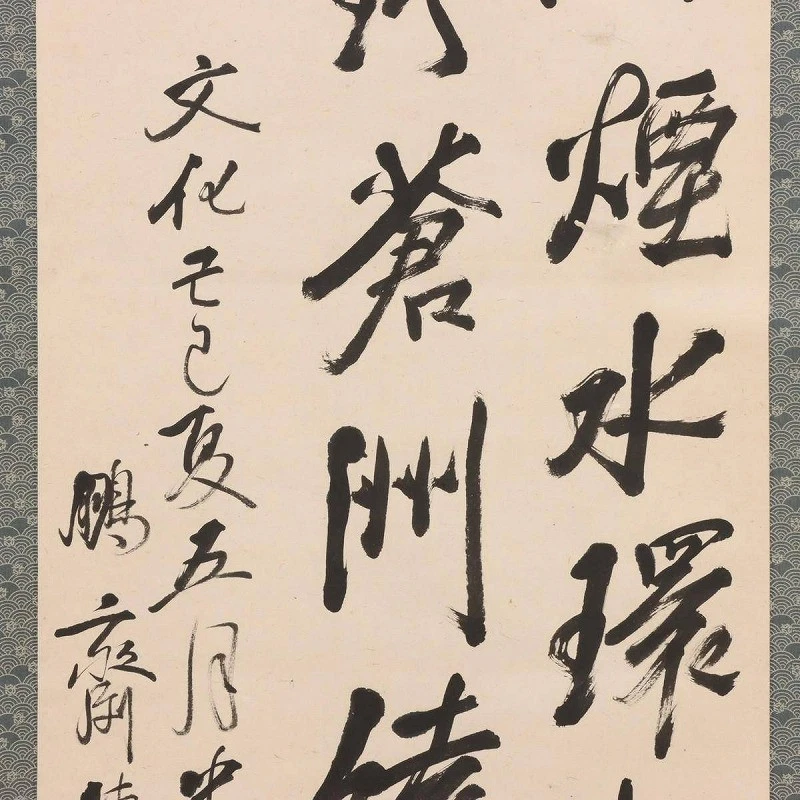 煙水環
蒼洲
文化己巳夏五月
鵬齋